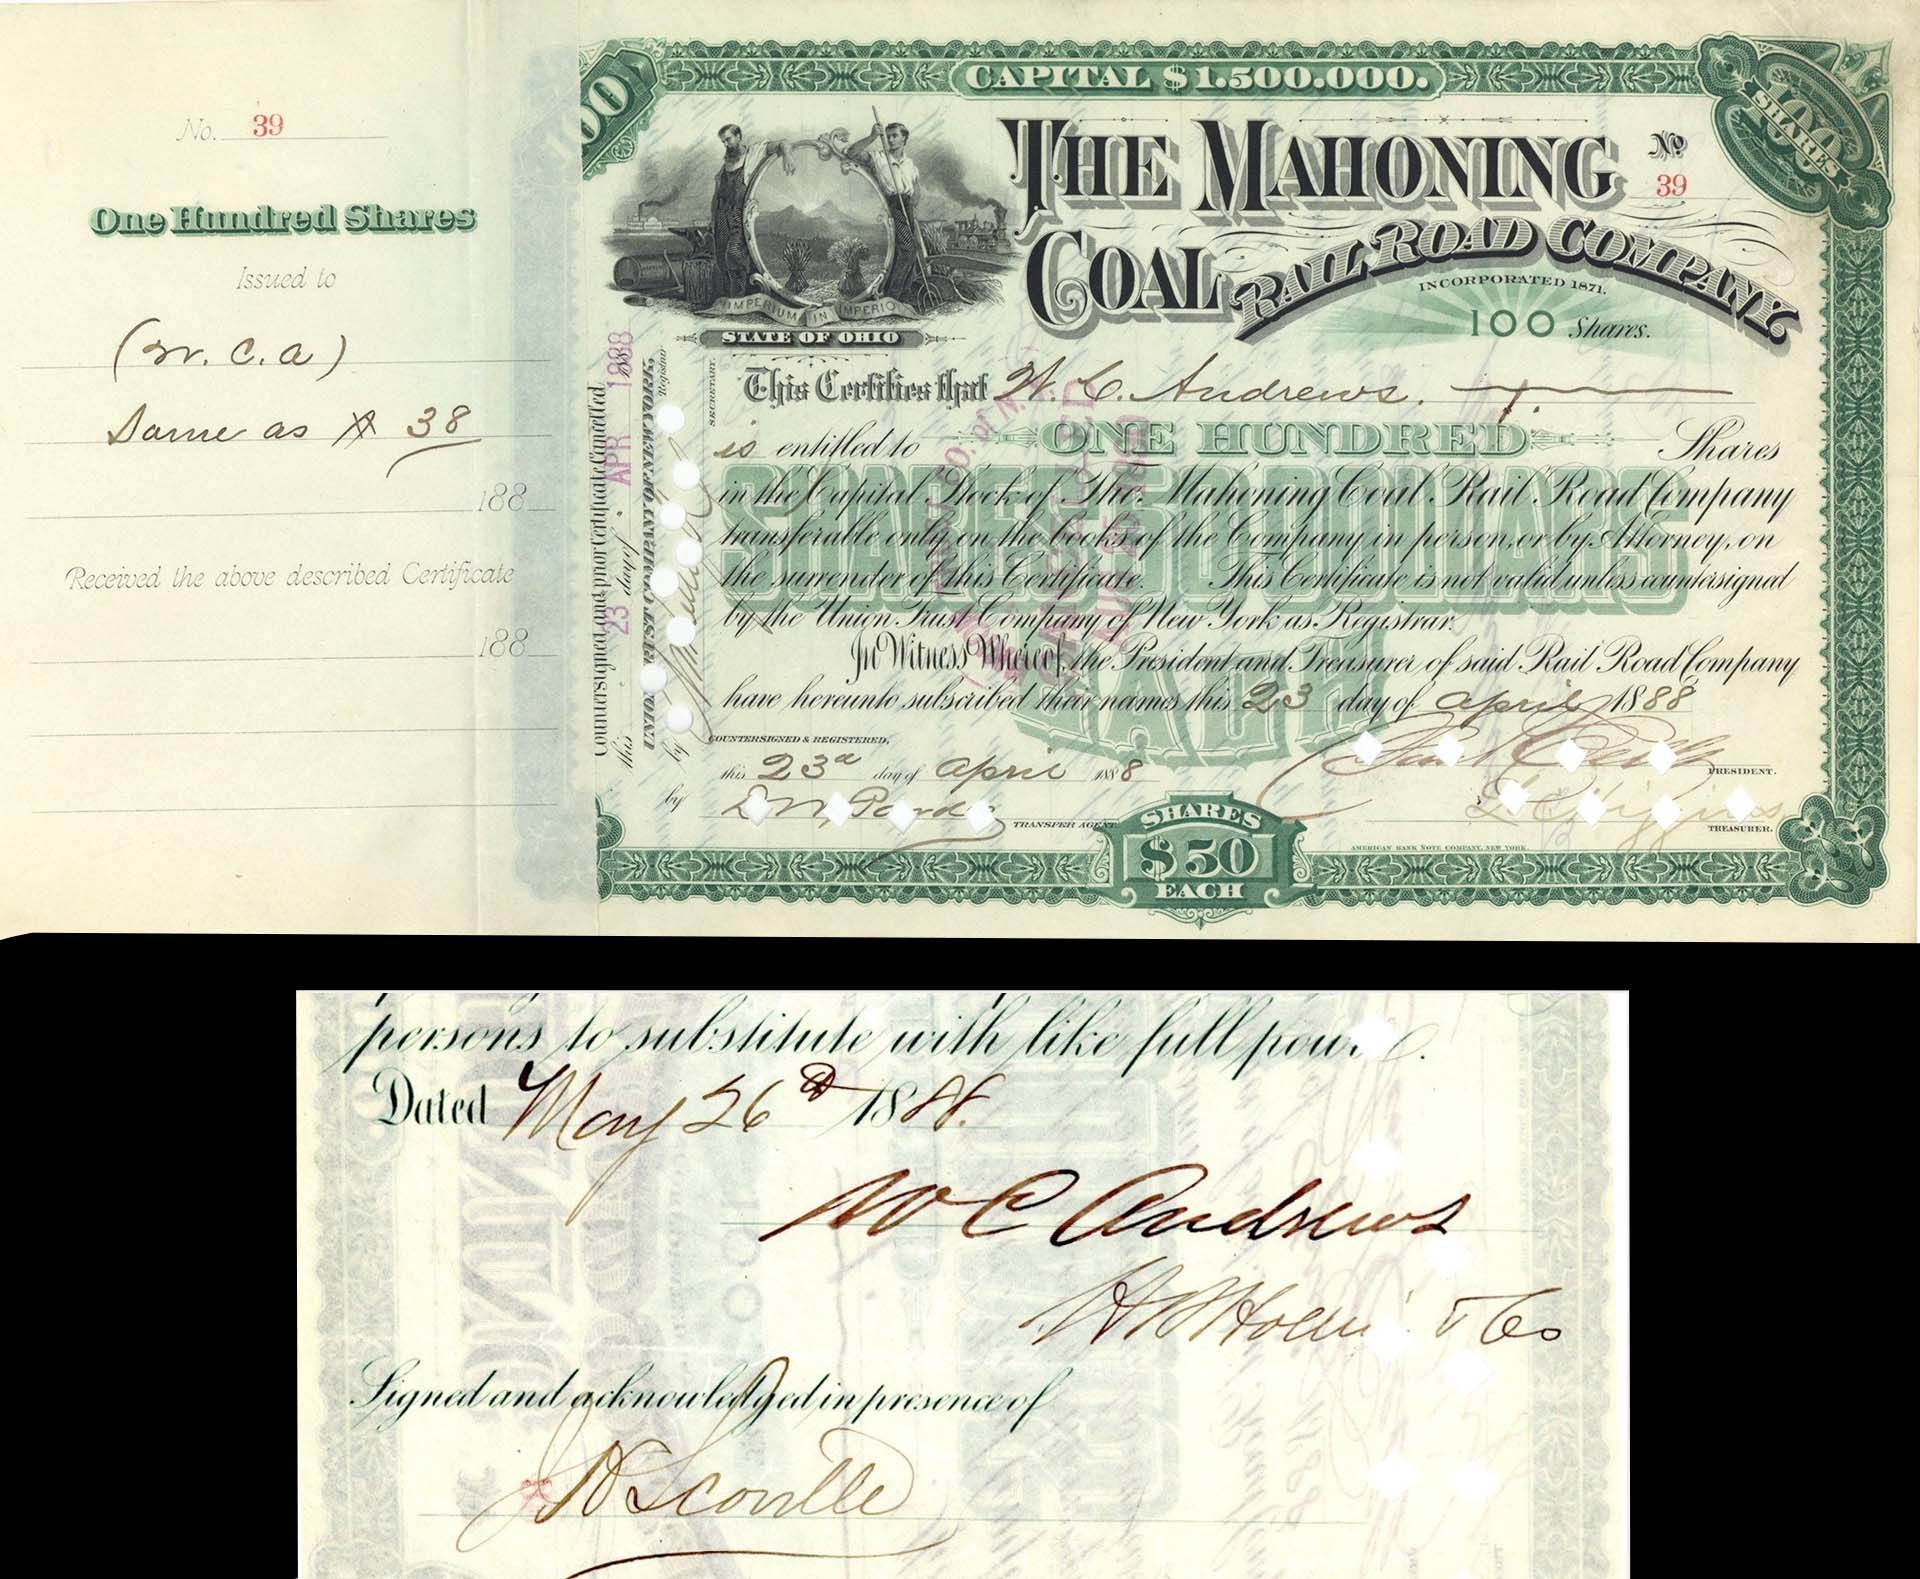 No. 39
One Hundred Shares
Issued to
(W. C. A)
Same as # 38
188
Received the above described Certificate
188
CAPITAL $1.500.000.
100
100 SHARES
THE MAHONING
COAL RAIL ROAD COMPANY
No 39
INCORPORATED 1871.
100 Shares.
IMPERIUM IN IMPERIO
STATE OF OHIO
Countersigned, and prior Certificate Cancelled,
this 23 day of APR 1888
UNION TRUST COMPANY OF NEW YORK,
Registrar
by
SECRETARY.
This Certifies that W. C. Andrews.
is entitled to ONE HUNDRED Shares
in the Capital Stock of The Mahoning Coal Rail Road Company
transferable only on the books of the Company in person, or by Attorney, on
the surrender of this Certificate. This Certificate is not valid unless countersigned
by the Union Trust Company of New York as Registrar.
SHARES 50 DOLLARS
EACH
In Witness Whereof, the President and Treasurer of said Rail Road Company
have hereunto subscribed their names this 23 day of April 1888
COUNTERSIGNED & REGISTERED,
this 23d day of April 1888
by TRANSFER AGENT
PRESIDENT.
TREASURER.
SHARES
$50
EACH
AMERICAN BANK NOTE COMPANY, NEW YORK.
persons to substitute with like full power.
Dated May 26th 1888.
W C Andrews
Signed and acknowledged in presence of